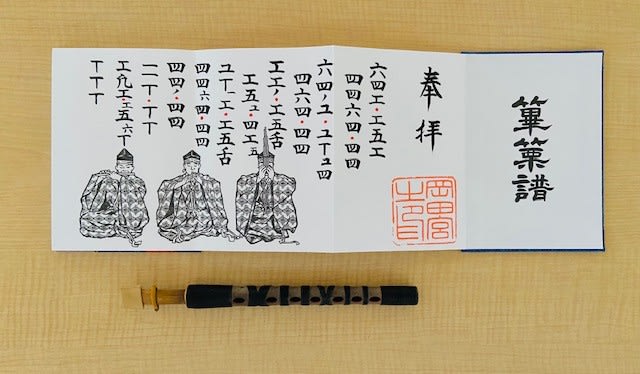 篳篥譜
奉拝
岡田宮
六四工・工五工
四四六四・四四
六四ノユ・ユ丅ユ四
四六四・四四
工工ノ・工五舌
工五ユ・四工五
ユ丅一工・工五舌
四四六四・四四
四四ノ・四四
二丅・丅丅
工凢工・工五六丅
丅丅丅